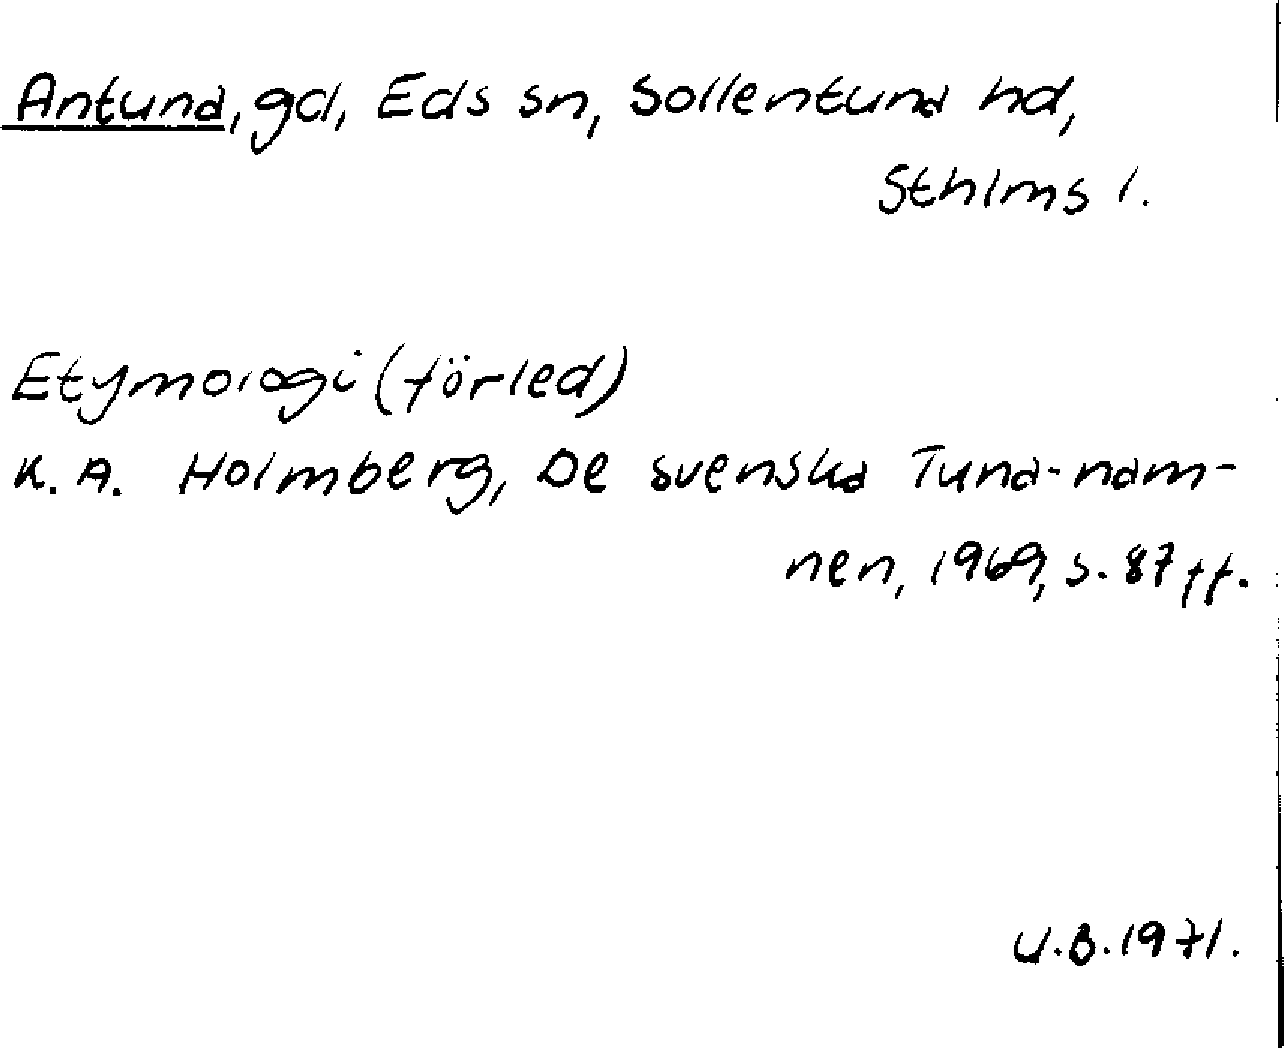 Antuna, gd, Eds sn, Sollentuna hd,
Sthlms l.
Etymologi (förled)
K. A. Holmberg, De svenska Tuna-nam-
nen, 1969, s. 87 ff.
U.B. 1971.